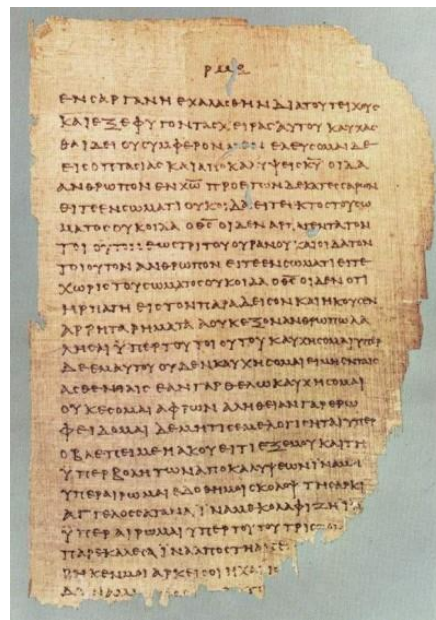 ΕΝϹΑΡΓΑΝΗΕΧΑΛΑϹΘΗΝΔΙΑΤΟΥΤΕΙΧΟΥϹ
ΚΑΙΕΞΕΦΥΓΟΝΤΑϹΧΕΙΡΑϹΑΥΤΟΥΚΑΥΧΑϹ
ΘΑΙΔΕΙΟΥϹΥΜΦΕΡΟΝΜΕΝΕΛΕΥϹΟΜΑΙΔΕ
ΕΙϹΟΠΤΑϹΙΑϹΚΑΙΑΠΟΚΑΛΥΨΕΙϹΚ̅Υ̅ΟΙΔΑ
ΑΝΘΡΩΠΟΝΕΝΧ̅Ω̅ΠΡΟΕΤΩΝΔΕΚΑΤΕϹϹΑΡΩΝ
ΕΙΤΕΕΝϹΩΜΑΤΙΟΥΚΟΙΔΑΕΙΤΕΕΚΤΟϹΤΟΥϹΩ
ΜΑΤΟϹΟΥΚΟΙΔΑΟΘ̅Ϲ̅ΟΙΔΕΝΑΡΠΑΓΕΝΤΑΤΟΝ
ΤΟΙΟΥΤΟΝΕΩϹΤΡΙΤΟΥΟΥΡΑΝΟΥΚΑΙΟΙΔΑΤΟΝ
ΤΟΙΟΥΤΟΝΑΝΘΡΩΠΟΝΕΙΤΕΕΝϹΩΜΑΤΙΕΙΤΕ
ΧΩΡΙϹΤΟΥϹΩΜΑΤΟϹΟΥΚΟΙΔΑΟΘ̅Ϲ̅ΟΙΔΕΝΟΤΙ
ΗΡΠΑΓΗΕΙϹΤΟΝΠΑΡΑΔΕΙϹΟΝΚΑΙΗΚΟΥϹΕΝ
ΑΡΡΗΤΑΡΗΜΑΤΑΑΟΥΚΕΞΟΝΑΝΘΡΩΠΩΛΑ
ΛΗϹΑΙΫΠΕΡΤΟΥΤΟΙΟΥΤΟΥΚΑΥΧΗϹΟΜΑΙΥΠΕΡ
ΔΕΕΜΑΥΤΟΥΟΥΔΕΝΚΑΥΧΗϹΟΜΑΙΕΙΜΗΕΝΤΑΙϹ
ΑϹΘΕΝΙΑΙϹΕΑΝΓΑΡΘΕΛΩΚΑΥΧΗϹΟΜΑΙ
ΟΥΚΕϹΟΜΑΙΑΦΡΩΝΑΛΗΘΕΙΑΝΓΑΡΕΡΩ
ΦΕΙΔΟΜΑΙΔΕΜΗΤΙϹΕΜΕΛΟΓΙϹΗΤΑΙΥΠΕΡ
ΟΒΛΕΠΕΙΜΕΗΑΚΟΥΕΙΤΙΕΞΕΜΟΥΚΑΙΤΗ
ΫΠΕΡΒΟΛΗΤΩΝΑΠΟΚΑΛΥΨΕΩΝΪΝΑΜΗ
ΥΠΕΡΑΙΡΩΜΑΙΕΔΟΘΗΜΟΙϹΚΟΛΟΨΤΗϹΑΡΚΙ
ΑΓΓΕΛΟϹϹΑΤΑΝΑΪΝΑΜΕΚΟΛΑΦΙΖΗΪ
ΫΠΕΡΑΙΡΩΜΑΙΥΠΕΡΤΟΥΤΟΥΤΡΙϹ
ΠΑΡΕΚΑΛΕϹΑΪΝΑΑΠΟϹΤΗ
ΡΗΚΕΝΜΟΙΑΡΚΕΙϹΟΙΗΧΑΡΙ